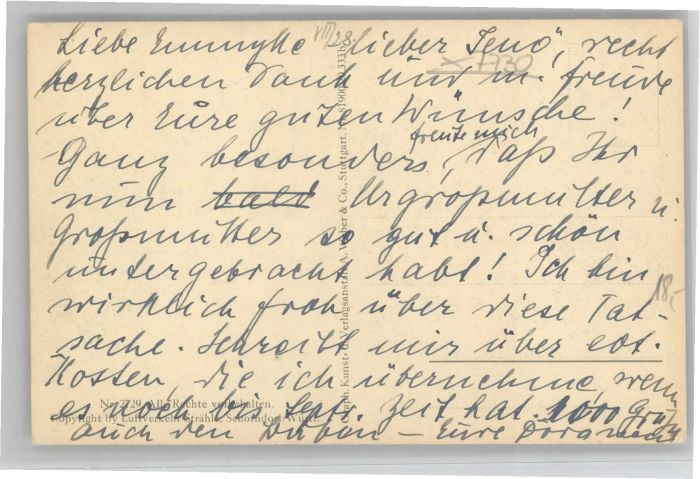 VIII/28.
Liebe Emmyke lieber Jenö, recht
x 7730
herzlichen Dank und m. Freude
über Eure guten Wünsche!
freute mich
Ganz besonders, daß Ihr
nun bald Urgroßmutter u.
Großmutter so gut u. schön
untergebracht habt! Ich bin
18.-
wirklich froh über diese Tat-
sache. Schreibt mir über evt.
Kosten die ich übernehme, wenn
es noch bis Sept. Zeit hat. 1000 Grüße
auch den Buben – Eure
Graph. Kunst- u. Verlagsanstalt A. Weber & Co., Stuttgart.
Nr. 2729. Alle Rechte vorbehalten.
Copyright by Luftverkehr Strähle, Schorndorf-Württ.